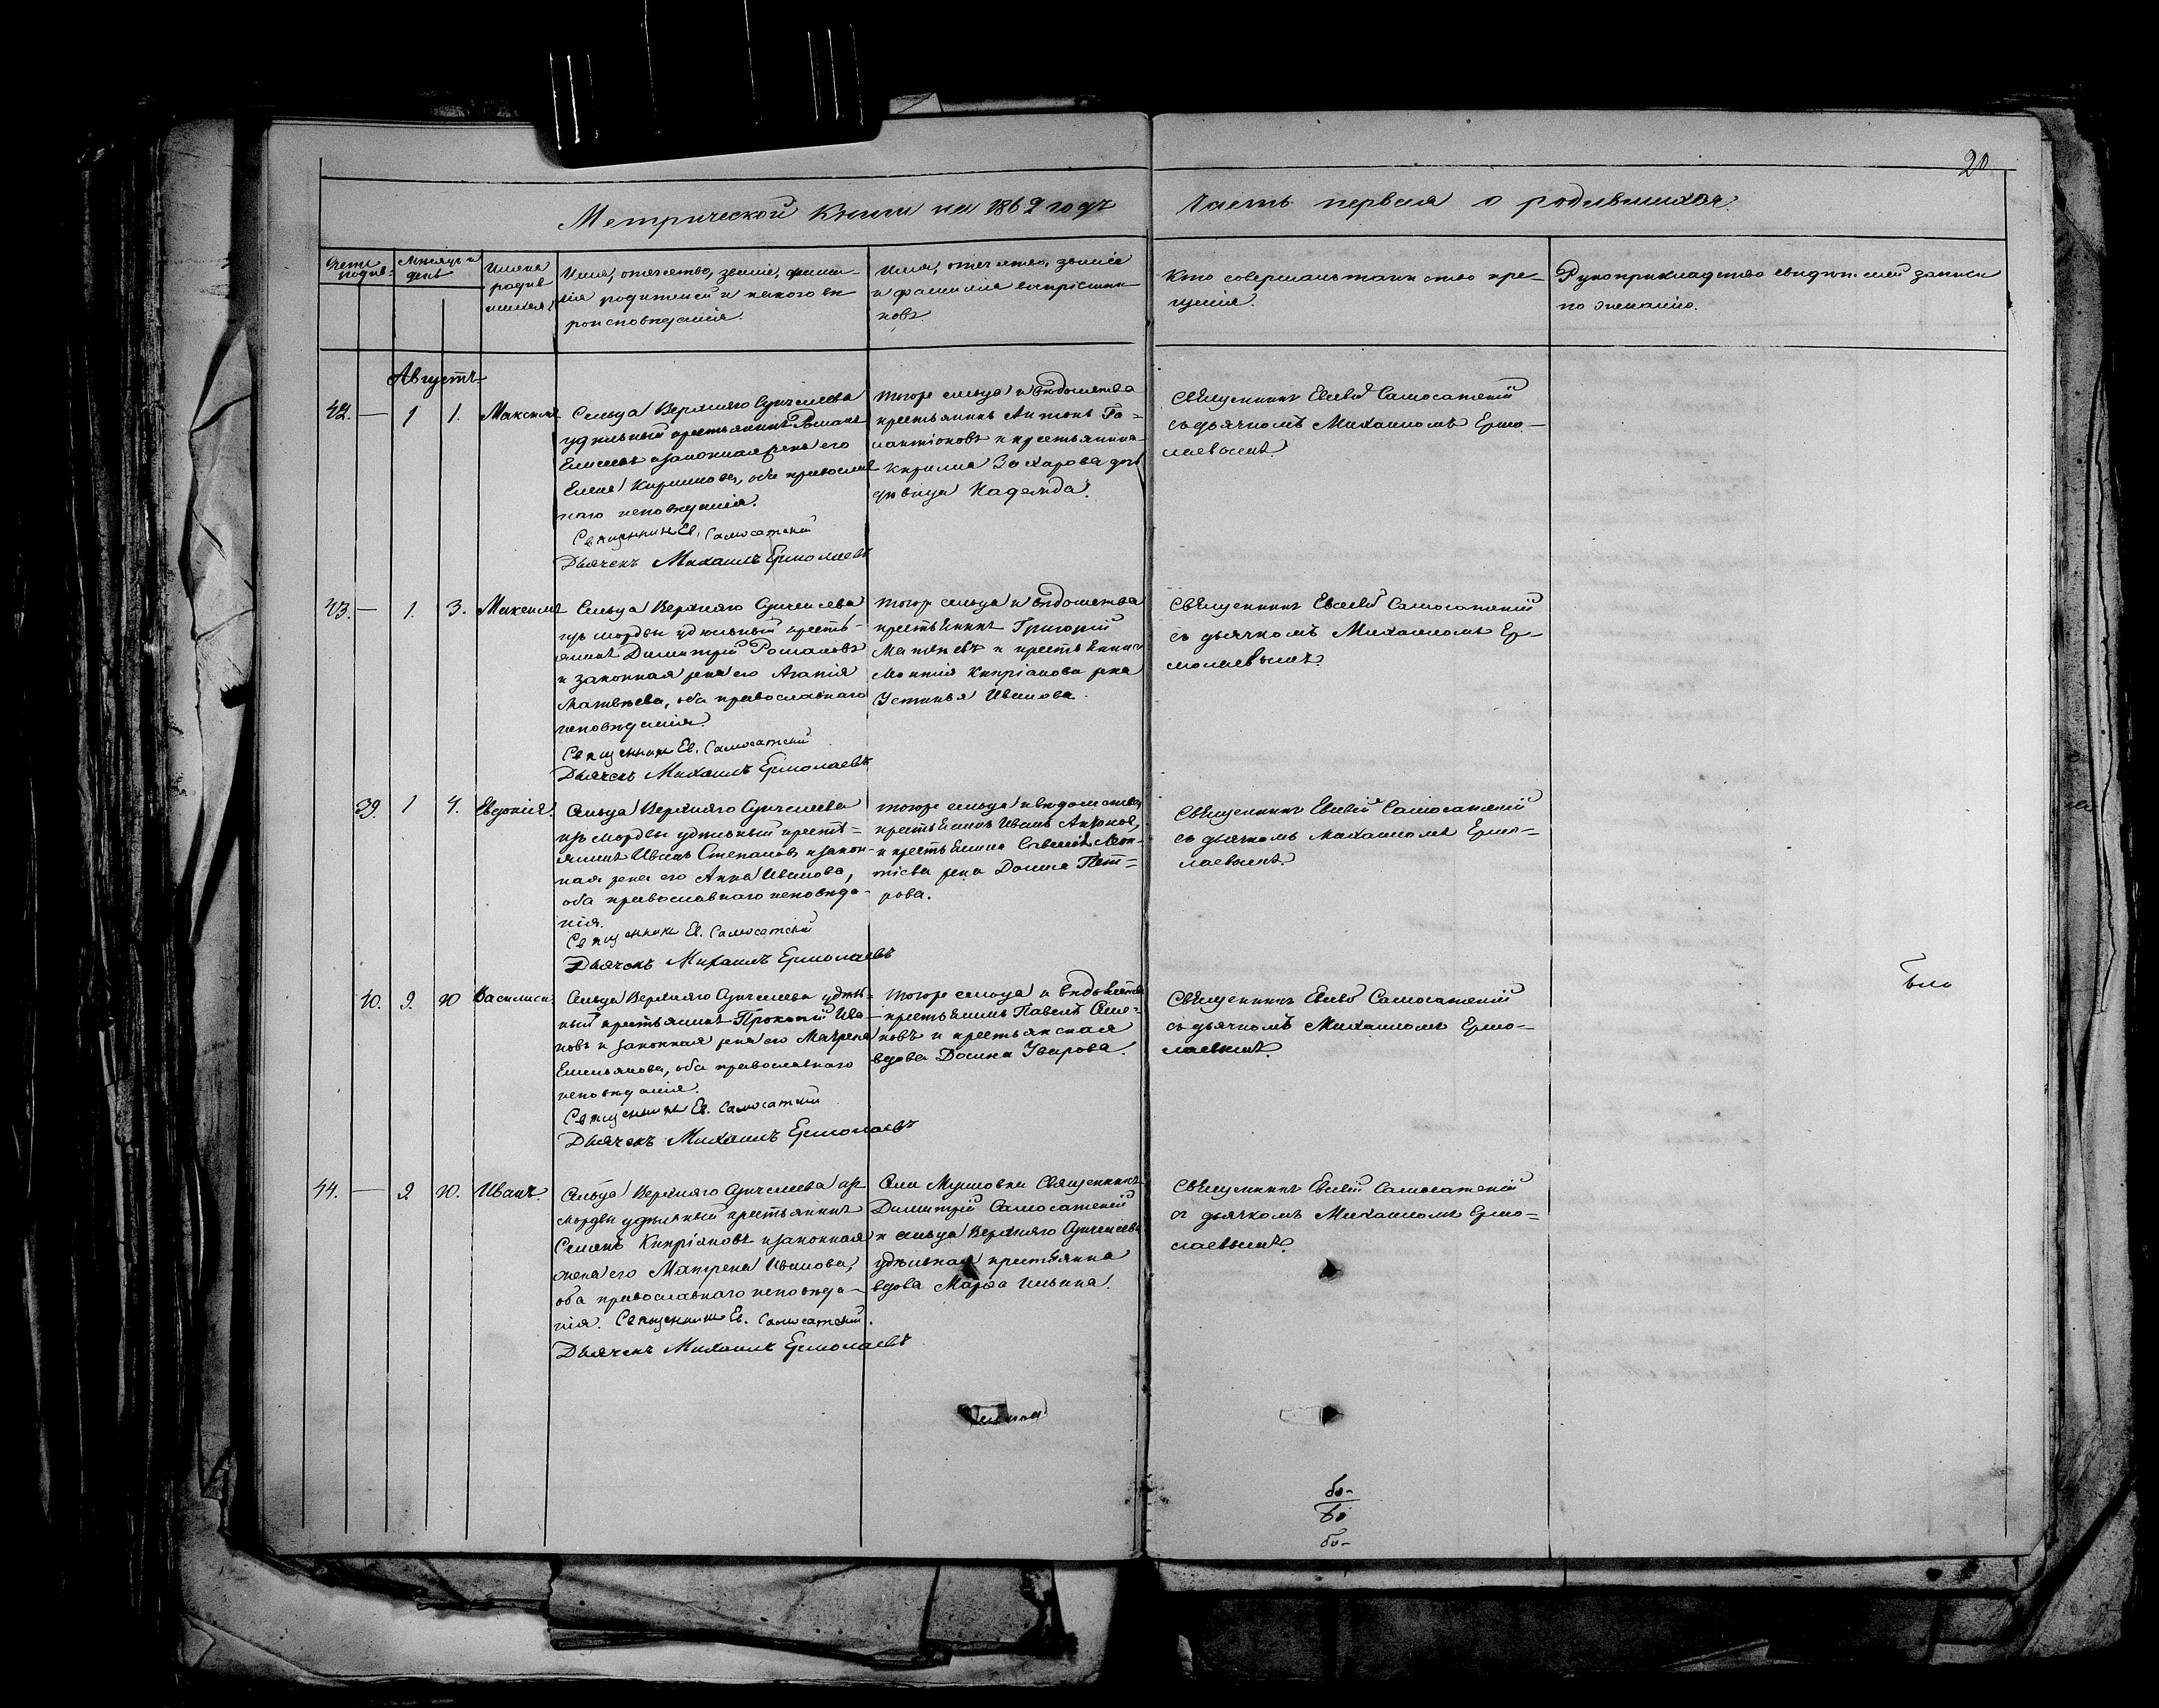 20
Метрической Книги на 1862 годъ Часть первая о родившихся.
Счетъ родив.
Мѣсяцъ и день
Имена родив шихся
Имя, отечество, званіе, фами-
лія родителей и какого вѣ
роисповѣданія.
Имя, отечество, званіе
и фамилія воспріемни
ковъ.
Кто совершалъ таинство кре-
щенія.
Рукоприкладство свидѣтелей записи
по желанію.
Августъ
42. — 1 1. Максимъ
Сельца Верхняго
удѣльный крестьянинъ Романъ
Елисеевъ и законная жена его
Елена Кирилова, оба православ
наго исповѣданія.
Священникъ Ев. Самосатскій
Дьячекъ Михаилъ Ермолаевъ
тогоже сельца и вѣдомства
крестьянинъ Антонъ Га-
лактіоновъ и крестьянина
Кирилла Захарова дочь
дѣвица Надежда.
Священникъ Евсевій Самосатскій
съ дьячкомъ Михаиломъ Ермо-
лаевымъ.
43. — 1. 3. Максимъ
Сельца Верхняго
изъ мордвы удѣльный кресть-
янинъ Димитрій Романовъ
и законная жена его Агапія
Матвѣева, оба православнаго
исповѣданія.
Священникъ Ев. Самосатскій
Дьячекъ Михаилъ Ермолаевъ
тогоже сельца и вѣдомства
крестьянинъ Григорій
Матвѣевъ и крестьянина
Кипріанова жена
Устинья Иванова.
Священникъ Евсевій Самосатскій
съ дьячкомъ Михаиломъ Ер-
молаевымъ.
39. 1 4. Евдокія.
Сельца Верхняго
изъ мордвы удѣльный кресть=
янинъ Иванъ Степановъ и закон-
ная жена его Анна Иванова,
оба православнаго исповѣда-
нія.
Священникъ Ев. Самосатскій
Дьячекъ Михаилъ Ермолаевъ
тогоже сельца и вѣдомства
крестьянинъ Иванъ
и крестьянина Савелія Леон-
тіева жена Домна Пет=
рова.
Священникъ Евсевій Самосатскій
съ дьячкомъ Михаиломъ Ермо-
лаевымъ.
40. 9. 10 Василиса.
Сельца Верхняго удѣль=
ный крестьянинъ Прокопій Ива
новъ и законная жена его Матрена
Емельянова, оба православнаго
исповѣданія.
Священникъ Ев. Самосатскій
Дьячекъ Михаилъ Ермолаевъ
тогоже сельца и вѣдомства
крестьянинъ Павелъ Семе-
новъ и крестьянская
вдова Домна Уварова.
Священникъ Евсевій Самосатскій
съ дьячкомъ Михаиломъ Ермо-
лаевымъ.
44. — 9. 10. Иванъ.
Сельца Верхняго изъ
мордвы удѣльный крестьянинъ
Семенъ Кипріановъ и законная
жена его Матрена Иванова,
оба православнаго исповѣда-
нія. Священникъ Ев. Самосатскій.
Дьячекъ Михаилъ Ермолаевъ
Села Священникъ
Димитрій Самосатскій
и сельца Верхняго
удѣльная крестьянка
вдова Марѳа Ильина.
Священникъ Евсевій Самосатскій
съ дьячкомъ Михаиломъ Ермо=
лаевымъ.